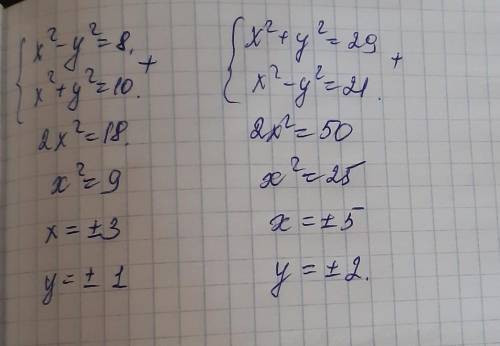 x² - y² = 8.
x² + y² = 10. +
2x² = 18.
x² = 9
x = ±3
y = ± 1
x² + y² = 29
x² - y² = 21. +
2x² = 50
x² = 25
x = ±5
y = ±2.